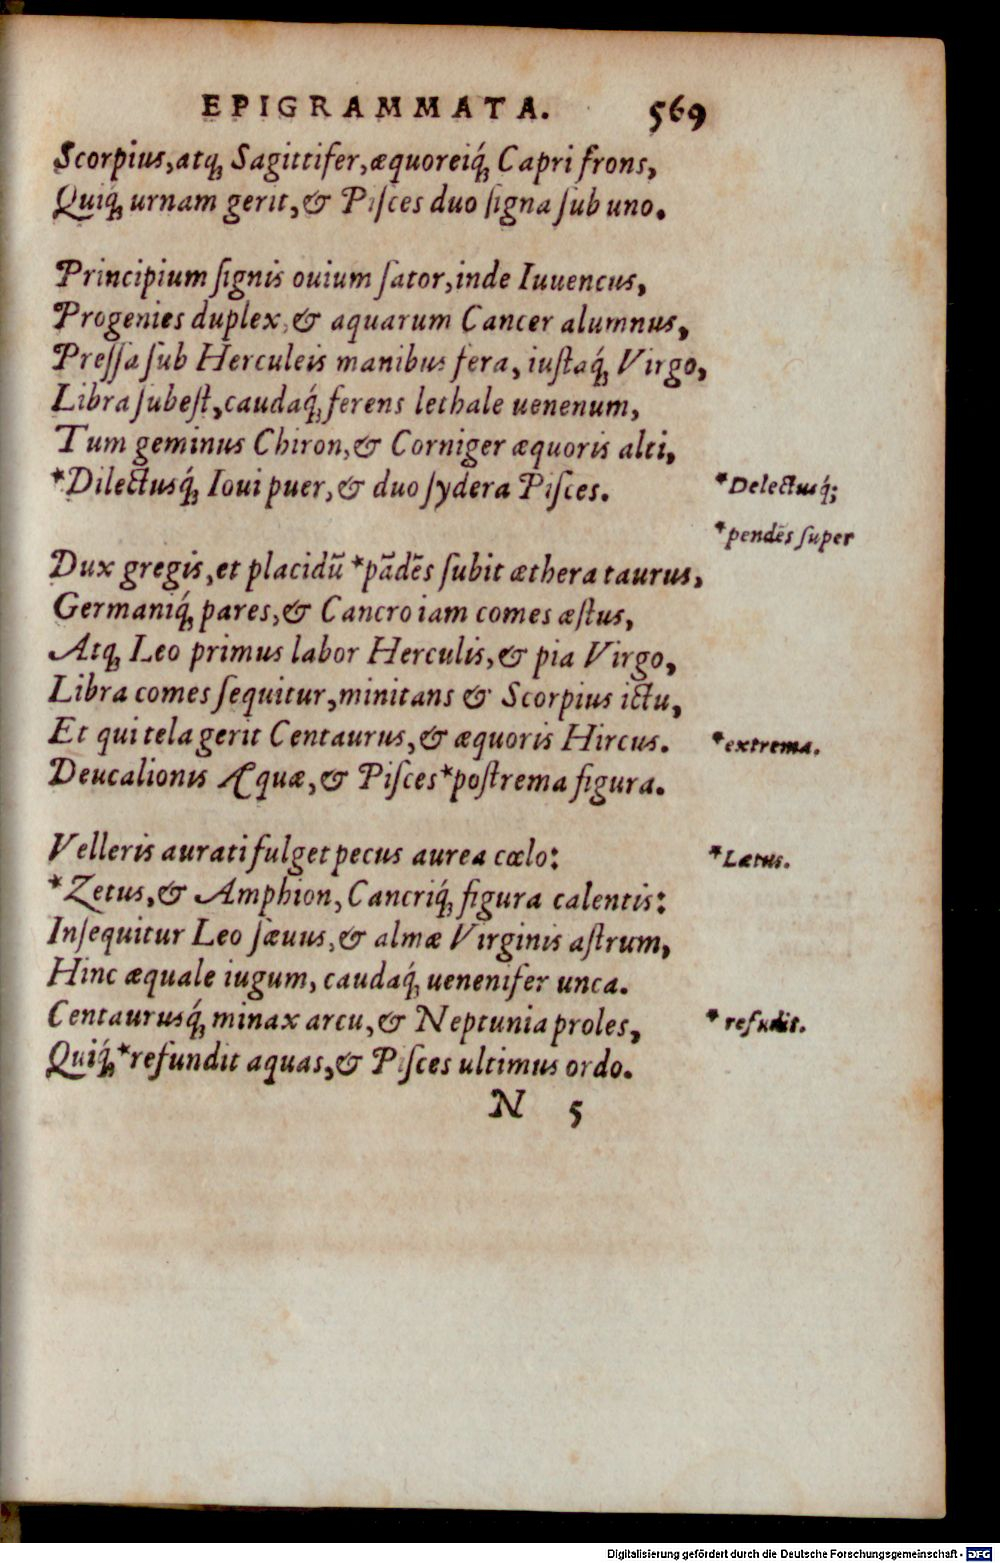 EPIGRAMMATA. 569
Scorpius, atq́; Sagittifer, æquoreiq́; Capri frons,
Quiq́; urnam gerit, & Piſces duo ſigna ſub uno.
Principium ſignis ouium ſator, inde Iuuencus,
Progenies duplex, & aquarum Cancer alumnus,
Preſſa ſub Herculeis manibus fera, iuſtaq́; Virgo,
Libra ſubeſt, caudaq́; ferens lethale uenenum,
Tum geminus Chiron, & Corniger æquoris alti,
*Dilectusq́; Ioui puer, & duo ſydera Piſces.
*Delectusq́;
*pendẽs ſuper
Dux gregis, et placidũ *pãdẽs ſubit æthera taurus,
Germaniq́; pares, & Cancro iam comes æſtus,
Atq; Leo primus labor Herculis, & pia Virgo,
Libra comes ſequitur, minitans & Scorpius ictu,
Et qui tela gerit Centaurus, & æquoris Hircus.
*extrema.
Deucalionis Æquæ, & Piſces *poſtrema figura.
Velleris aurati fulget pecus aurea cœlo:
*Lætus.
*Zetus, & Amphion, Cancriq́; figura calentis:
Inſequitur Leo ſæuus, & almæ Virginis aſtrum,
Hinc æquale iugum, caudaq́; uenenifer unca.
Centaurusq́; minax arcu, & Neptunia proles,
*refudit.
Quiq́; *refundit aquas, & Piſces ultimus ordo.
N 5
Digitalisierung gefördert durch die Deutsche Forschungsgemeinschaft - DFG